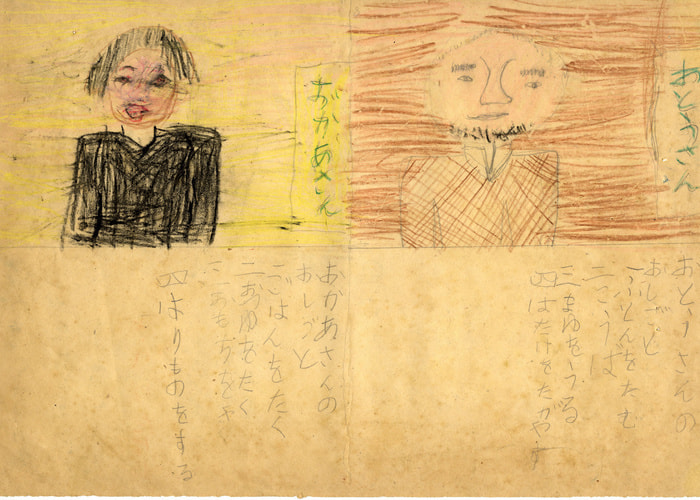 おとうさん
おとうさんの
おしごと
一ふとんをたむ
二こうば
三まゆをうる
四はたけをたがやす
おかあさん
おかあさんの
おしごと
一ごはんをたく
二おつゆをたく
三
四はりものをする